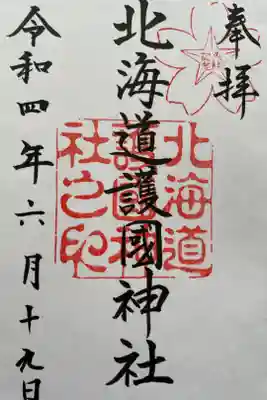 奉拝
北海道護國神社
北海道護國神社之印
令和四年六月十九日